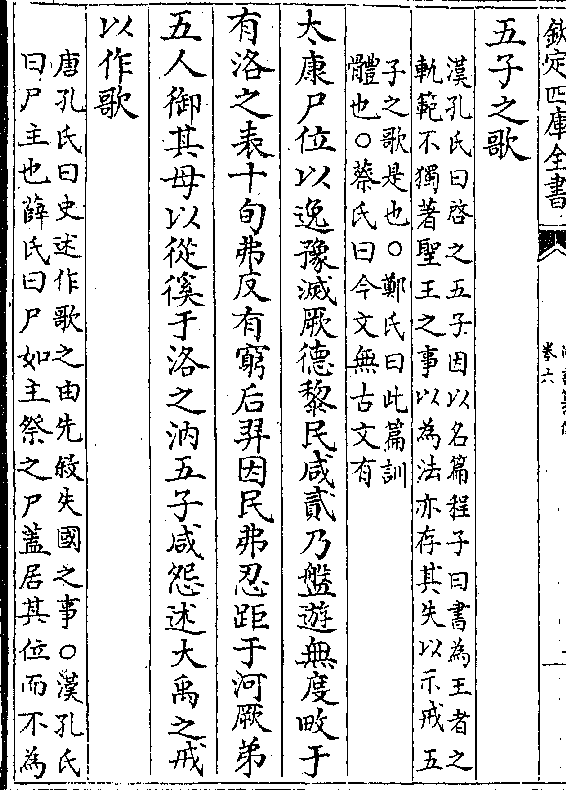 欽定四庫全書
卷六
五子之歌
漢孔氏曰啓之五子因以名篇程子曰書為王者之
軌範不獨著聖王之事以為法亦存其失以示戒五
子之歌是也○鄭氏曰此篇訓
體也○蔡氏曰今文無古文有
太康尸位以逸豫滅厥德黎民咸貳乃盤遊無度畋于
有洛之表十旬弗反有窮后羿因民弗忍距于河厥弟
五人御其母以從徯于洛之汭五子咸怨述大禹之戒
以作歌
唐孔氏曰史述作歌之由先敍失國之事○漢孔氏
曰尸主也薛氏曰尸如主祭之尸蓋居其位而不為